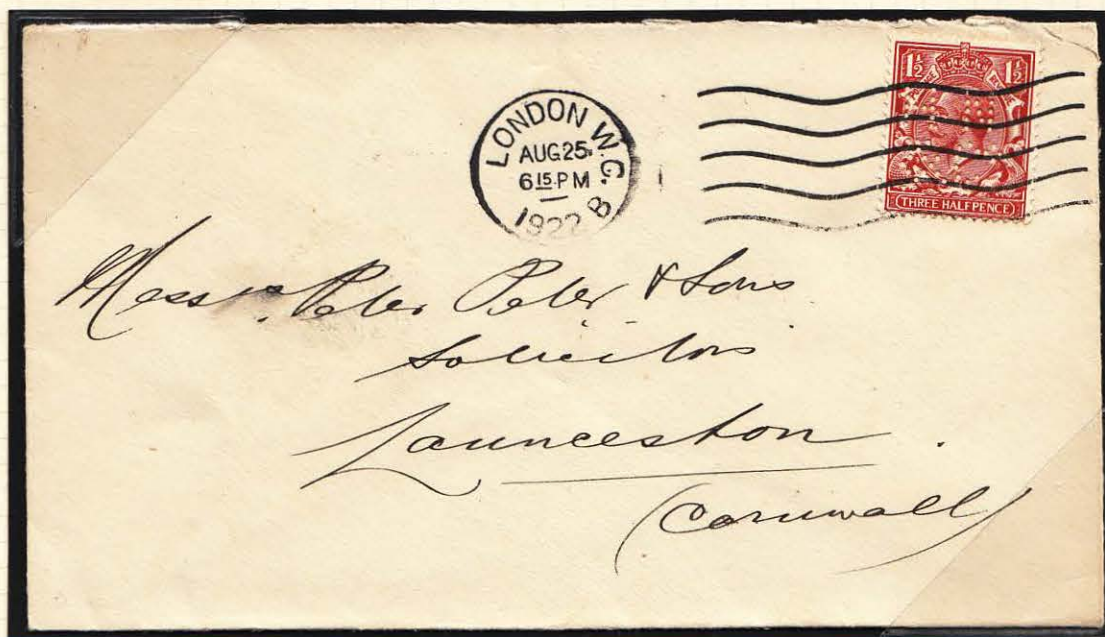 LONDON W.C.
AUG 25
6 15 PM
1922 B
1½ 1½
THREE HALFPENCE
Messrs. Peter Peter & Sons
Solicitors
Launceston.
(Cornwall)